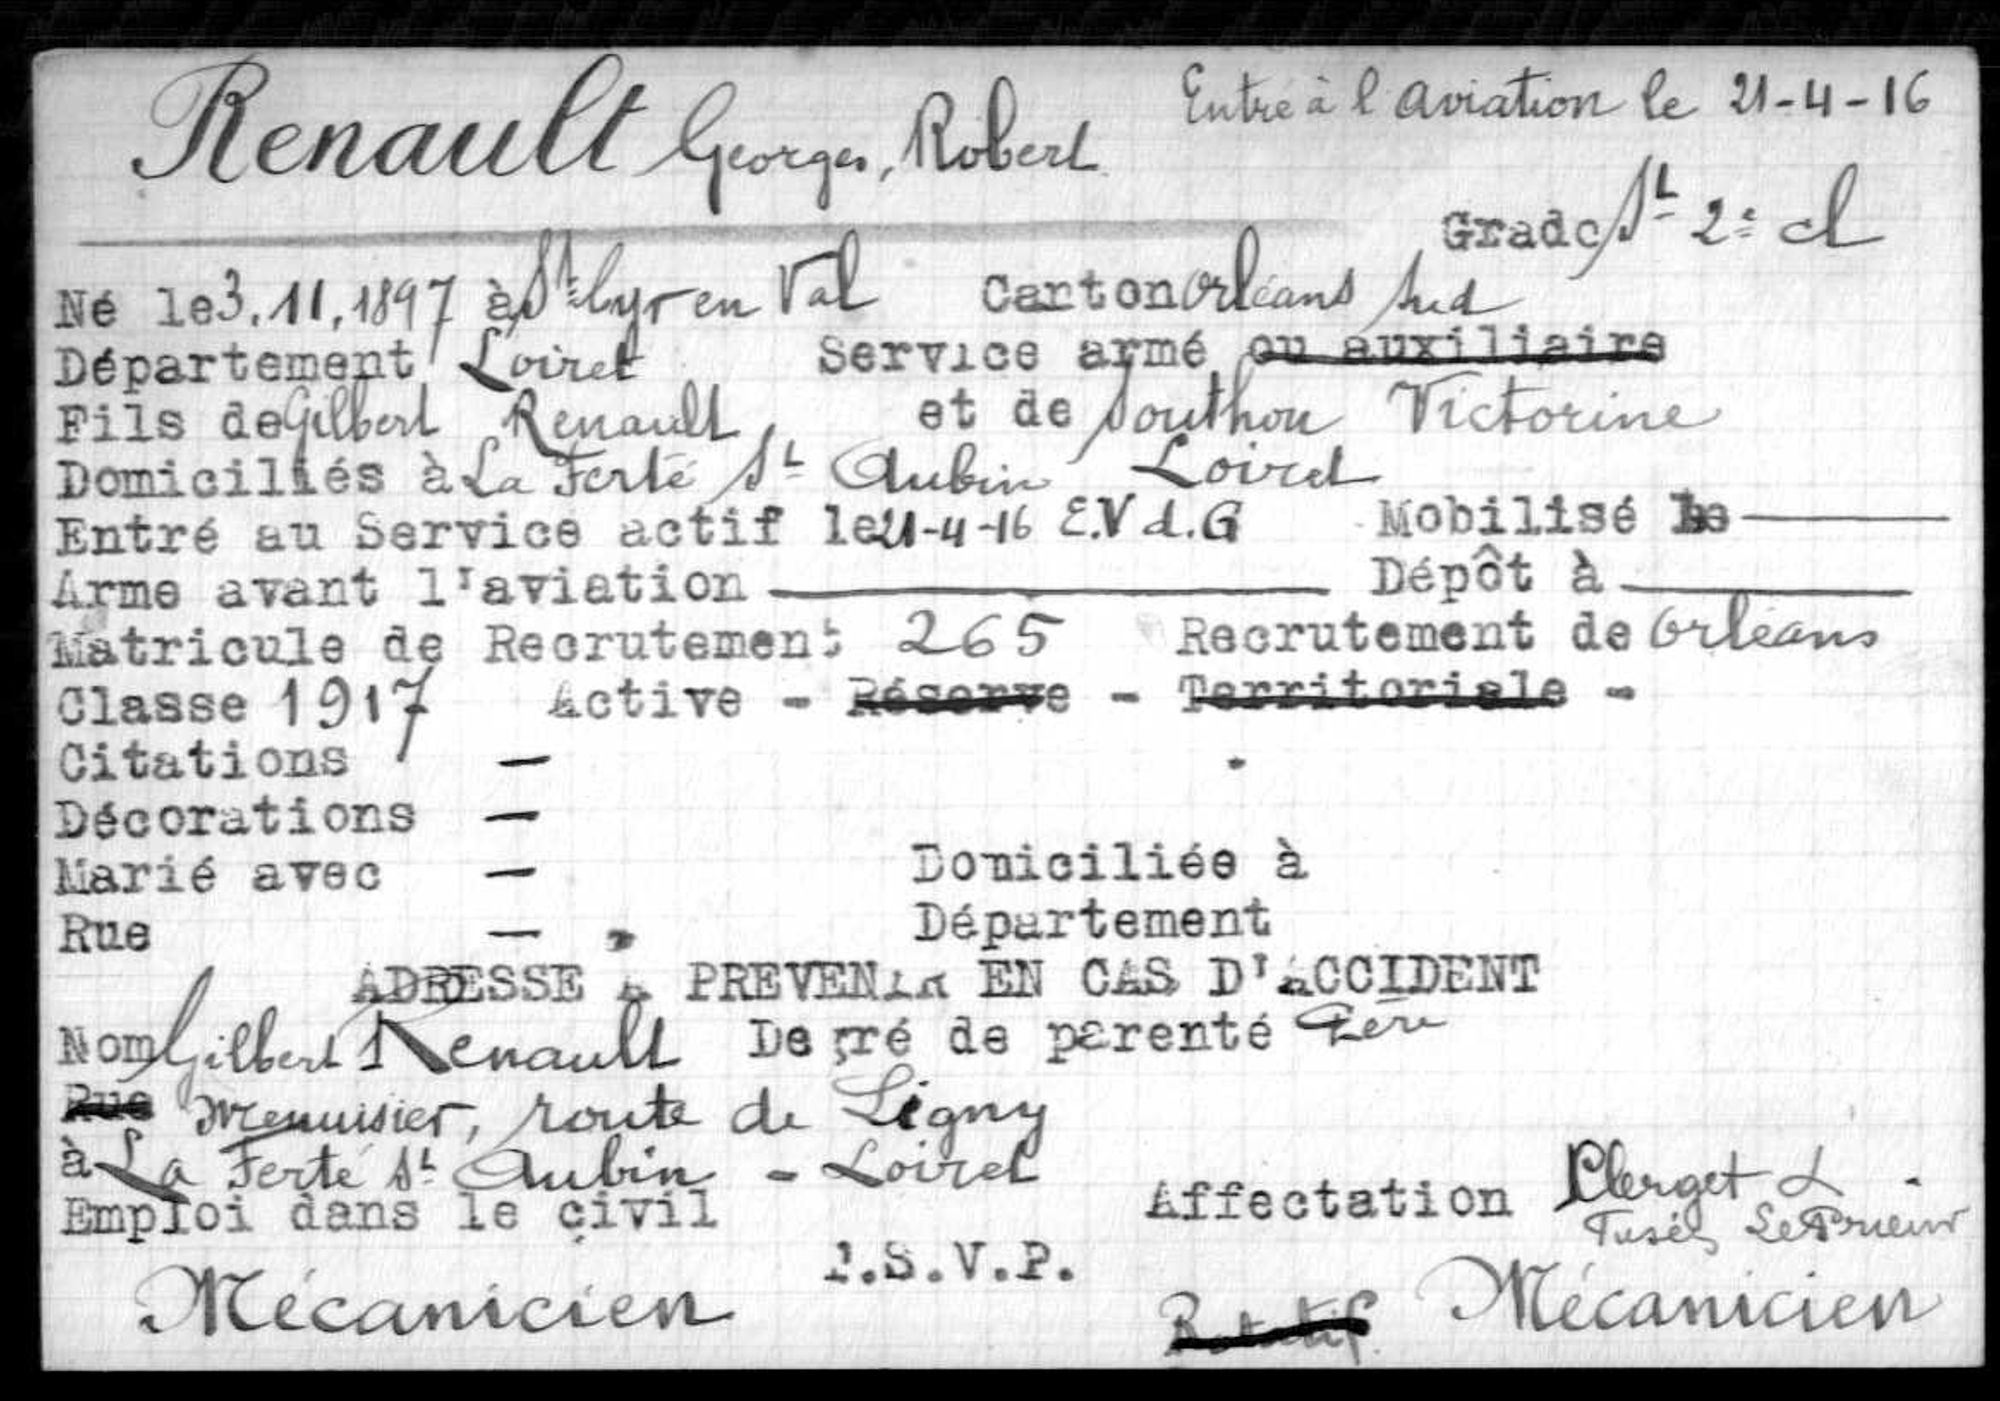 Renault Georges, Robert Entré à l'aviation le 21-4-16
Grade St 2e cl
Né le 3.11.1897 à St Cyr en Val Canton Orléans Sud
Département Loiret Service armé ou auxiliaire
Fils de Gilbert Renault et de Southou Victorine
Domiciliés à La Ferté St Aubin Loiret
Entré au Service actif le 21-4-16 E.V d.G Mobilisé le
Arme avant l'aviation Dépôt à
Matricule de Recrutement 265 Recrutement de Orléans
Classe 1917 Active - Réserve - Territoriale -
Citations —
Décorations —
Marié avec — Domiciliée à
Rue — Département
ADRESSE A PREVENIR EN CAS D'ACCIDENT
Nom Gilbert Renault Degré de parenté Père
Rue Menuisier, route de Ligny
à La Ferté St Aubin - Loiret
Emploi dans le civil Affectation Clerget
Fusées Le Prieur
T.S.V.P.
Mécanicien Rotatif Mécanicien